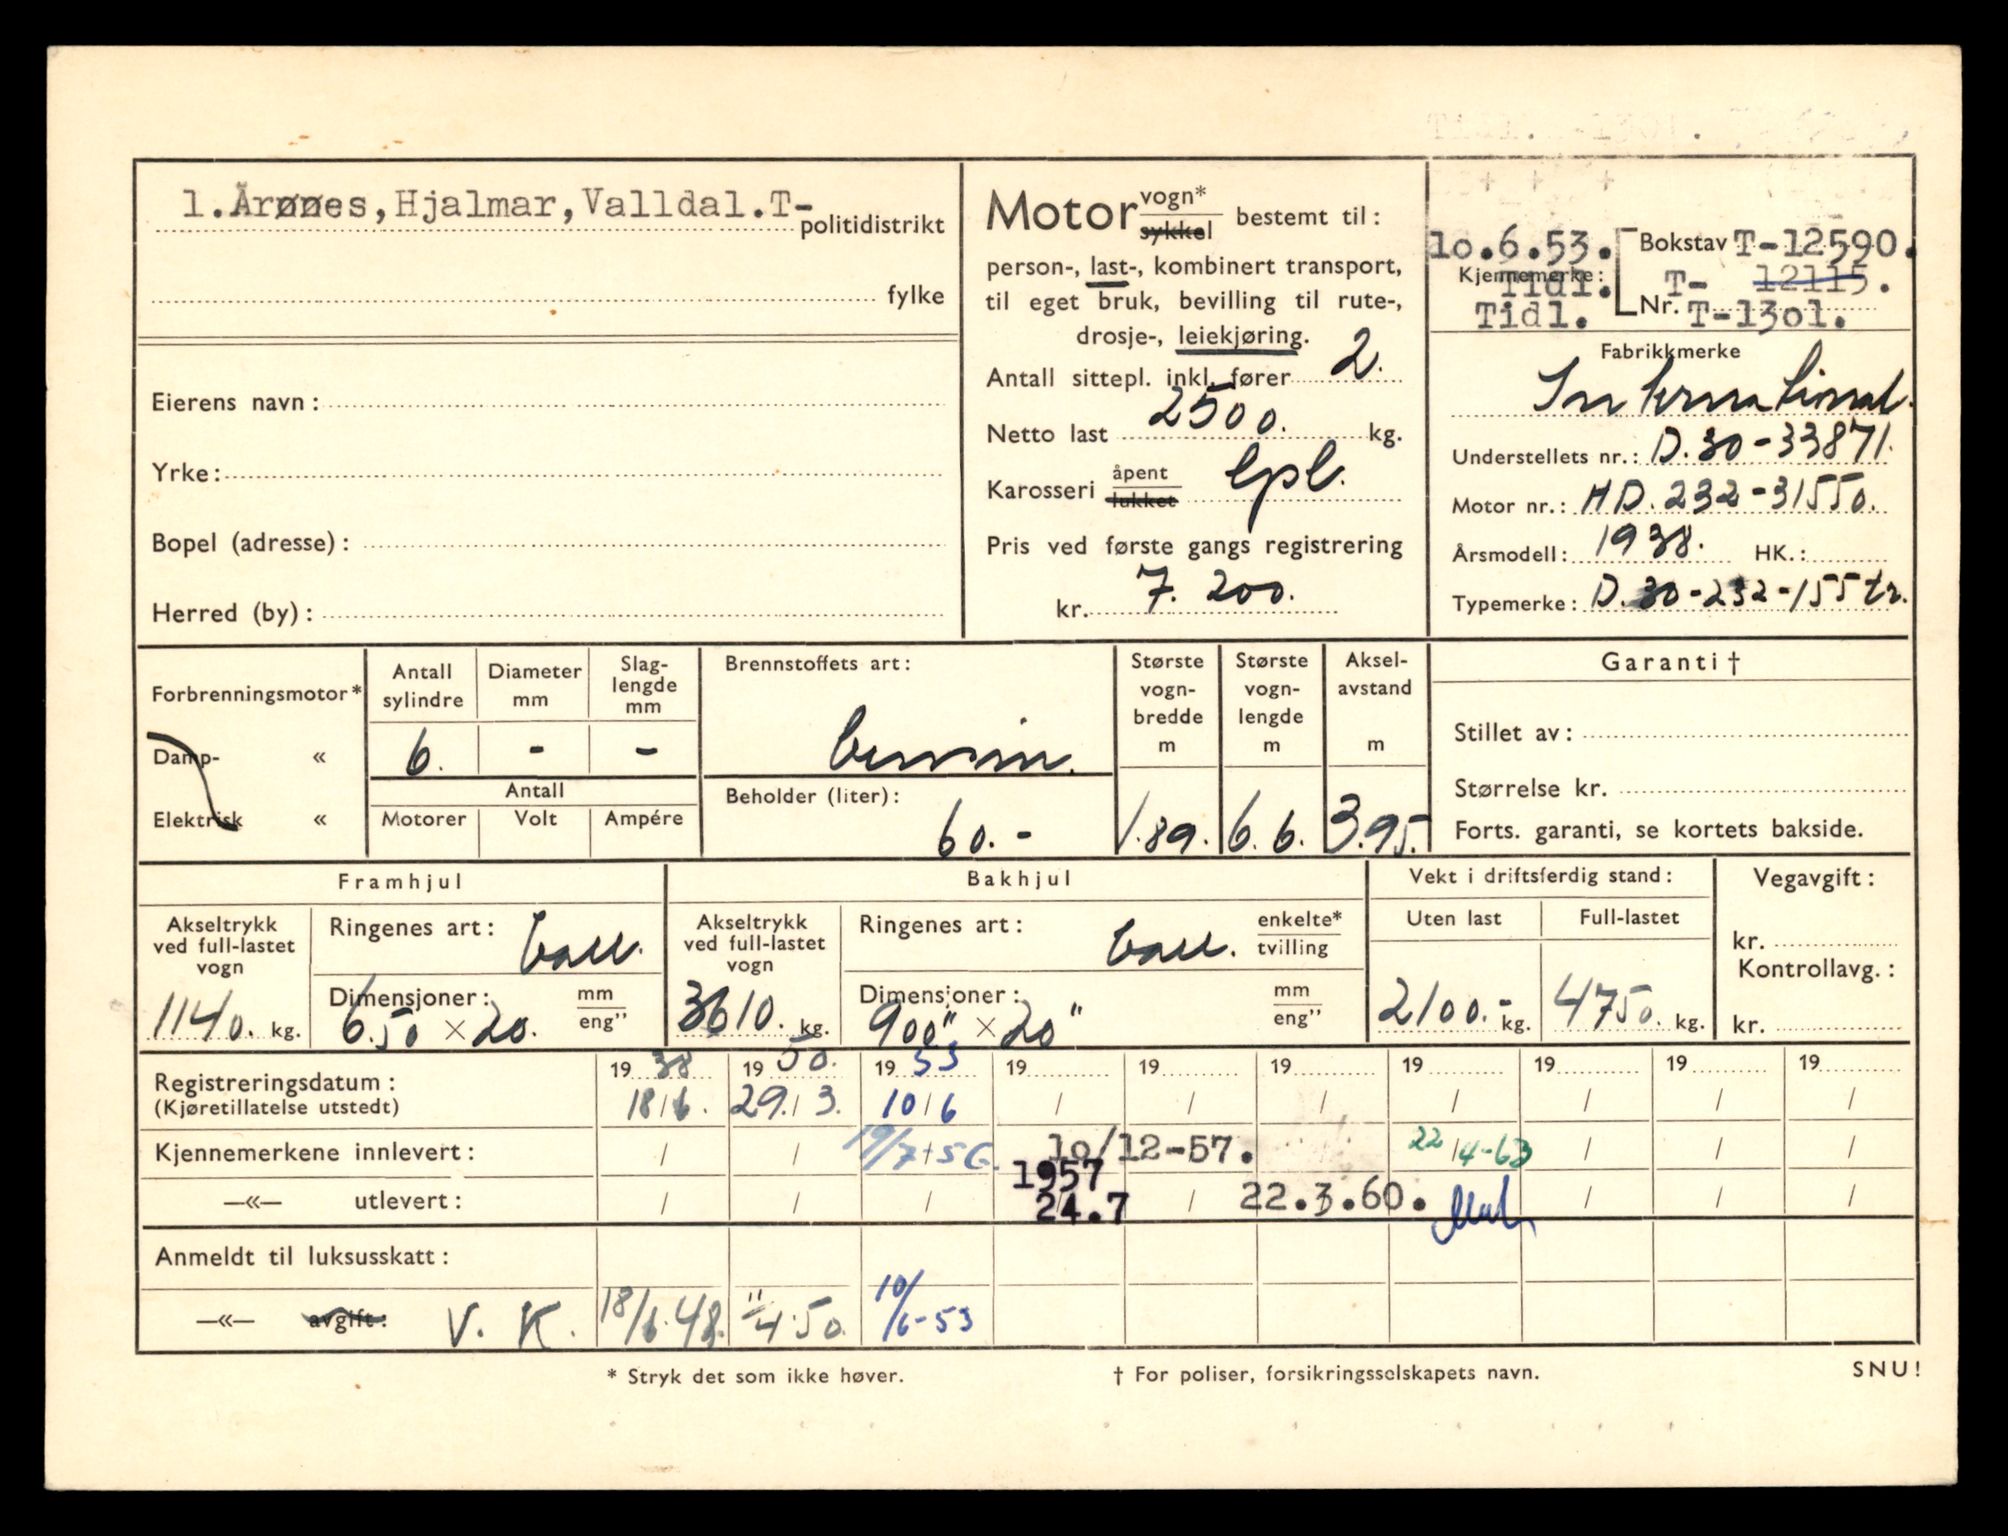 1.Årønes,Hjalmar,Valldal.T-
politidistrikt
fylke
Eierens navn:
Yrke:
Bopel (adresse):
Herred (by):
Motor vogn* / sykkel bestemt til:
person-, last-, kombinert transport,
til eget bruk, bevilling til rute-,
drosje-, leiekjøring.
Antall sittepl. inkl. fører 2.
Netto last 2500. kg.
Karosseri åpent / lukket
Pris ved første gangs registrering
kr. 7.200.
10.6.53. Bokstav T-12590.
Kjennemerke: Tidl. T- 12115.
Tidl. Nr. T-1301.
Fabrikkmerke
International.
Understellets nr.: D.30-33871.
Motor nr.: HD.232-31550.
Årsmodell: 1938. HK.:
Typemerke: D.30-232-155 tr.
Forbrenningsmotor*
Damp- «
Elektrisk «
Antall sylindre
Diameter mm
Slag-lengde mm
6. - -
Antall
Motorer Volt Ampére
Brennstoffets art:
bensin.
Beholder (liter):
60.-
Største vogn-bredde m
1.89.
Største vogn-lengde m
6.6.
Aksel-avstand m
3.95.
Garanti†
Stillet av:
Størrelse kr.
Forts. garanti, se kortets bakside.
Framhjul
Akseltrykk ved full-lastet vogn
1140. kg.
Ringenes art:
Dimensjoner: mm / eng"
6.50 × 20.
Bakhjul
Akseltrykk ved full-lastet vogn
3610. kg.
Ringenes art: enkelte* / tvilling
Dimensjoner: mm / eng"
900" × 20"
Vekt i driftsferdig stand:
Uten last Full-lastet
2100.- kg. 4750. kg.
Vegavgift:
kr.
Kontrollavg.:
kr.
1938 1950. 1953 19 19 19 19 19 19 19
Registreringsdatum:
(Kjøretillatelse utstedt)
18/6. 29./3. 10/6 / / / / / / /
Kjennemerkene innlevert: / / 19/7-56 10/12-57. 22/4-63 / / /
1957
—«— utlevert: / / / 24.7 / 22.3.60. / / /
Anmeldt til luksusskatt:
—«— avgift: V. K. 18/6.48. 11/4.50. 10/6-53
* Stryk det som ikke høver.
† For poliser, forsikringsselskapets navn.
SNU!